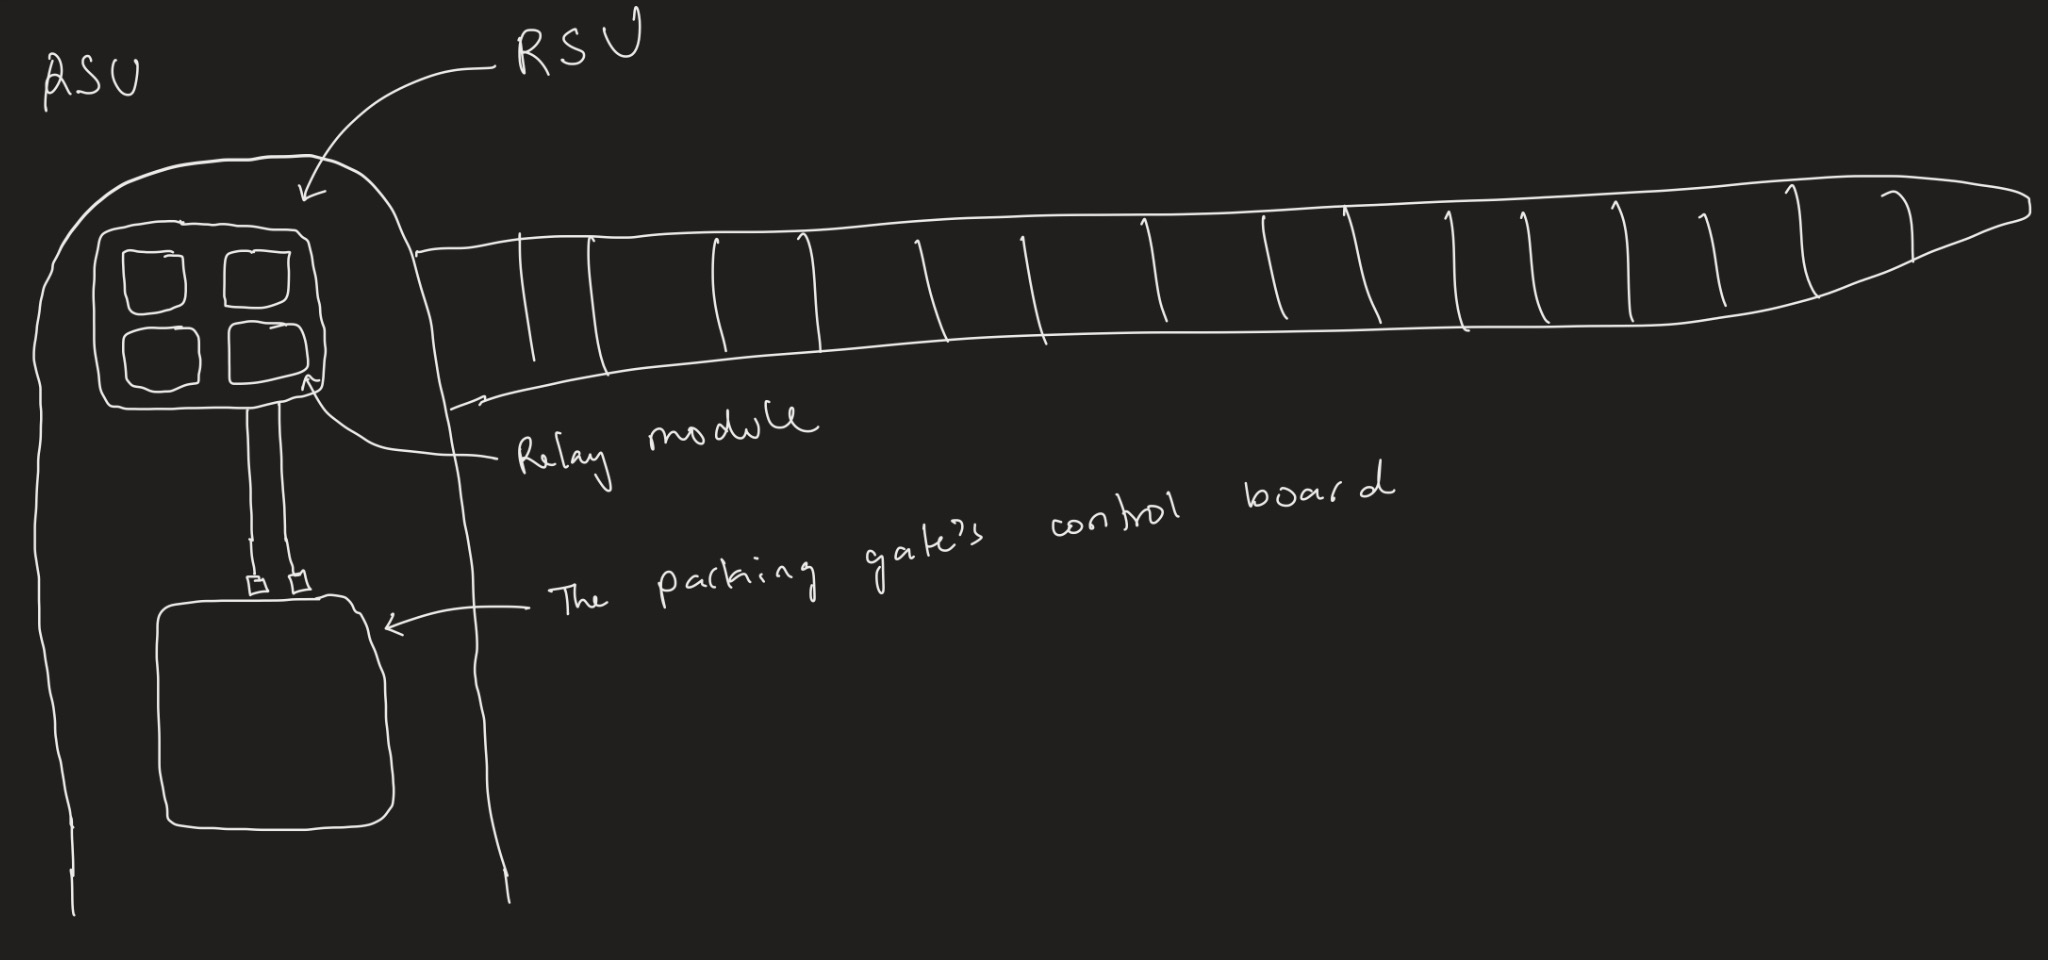 RSU
RSU
Relay module
The parking gate's control board